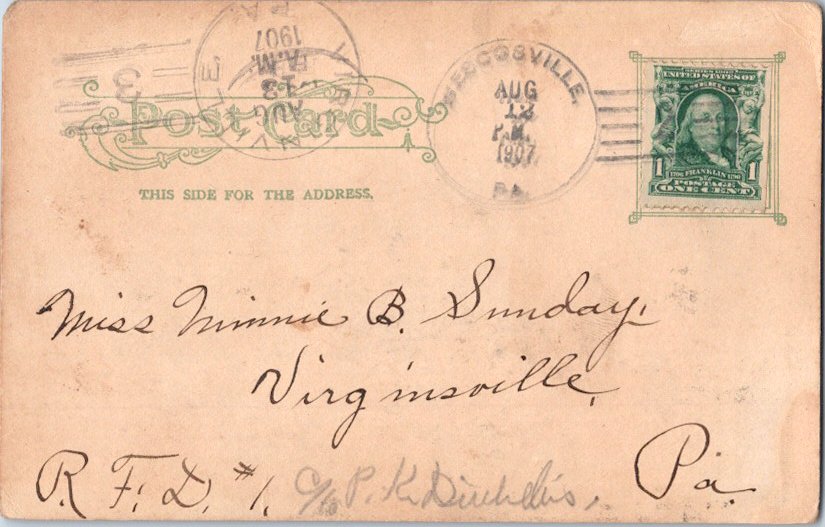 3
A.M.
AUG
13
1907
PA.
Post Card
THIS SIDE FOR THE ADDRESS.
WESCOSVILLE,
AUG
12
P.M.
1907
PA.
SERIES 1902
UNITED STATES OF
AMERICA
1706 FRANKLIN 1790
1 POSTAGE 1
ONE CENT
Miss Minnie B. Sunday,
Virginsville,
R. F. D. #1. c/o P. K. Pa.